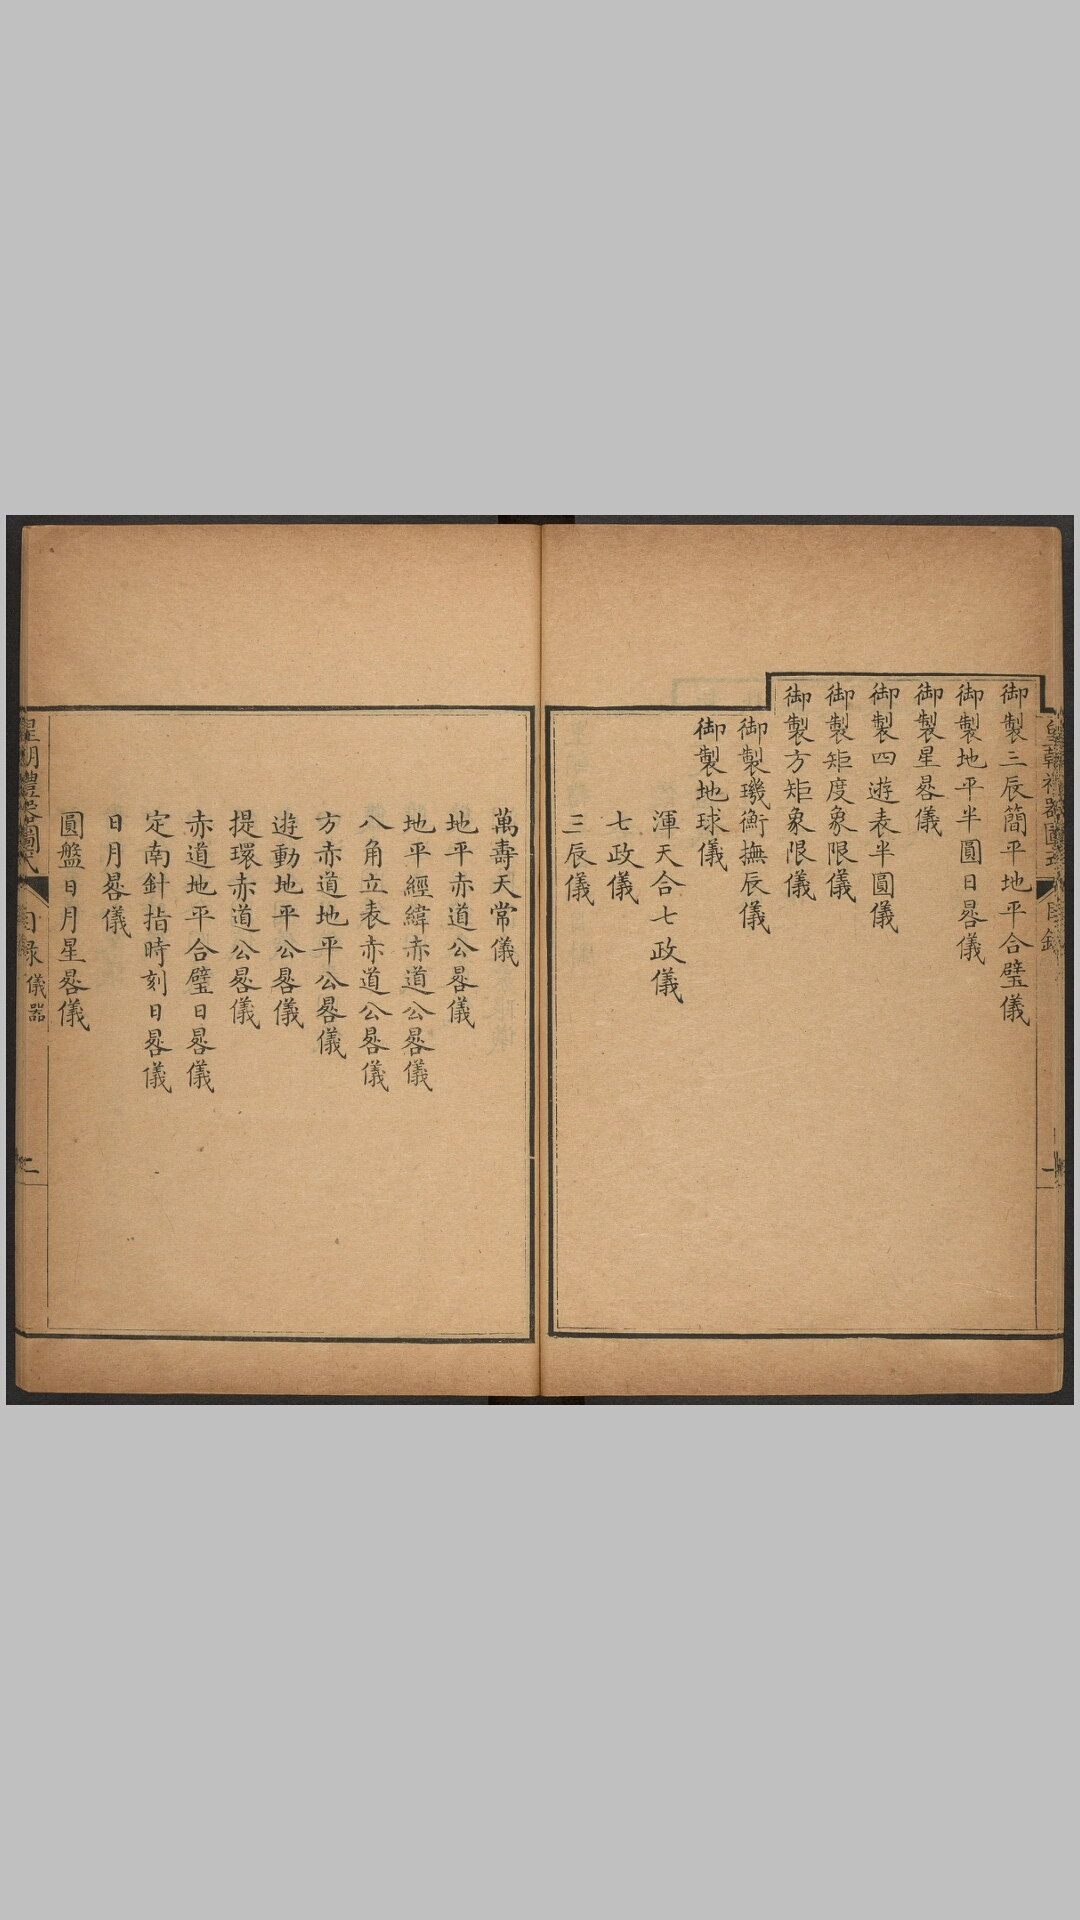 御製三辰簡平地平合璧儀
御製地平半圓日晷儀
御製星晷儀
御製四遊表半圓儀
御製矩度象限儀
御製方矩象限儀
御製璣衡撫辰儀
御製地球儀
渾天合七政儀
七政儀
三辰儀
萬壽天常儀
地平赤道公晷儀
地平經緯赤道公晷儀
八角立表赤道公晷儀
方赤道地平公晷儀
遊動地平公晷儀
提環赤道公晷儀
赤道地平合璧日晷儀
定南針指時刻日晷儀
日月晷儀
圓盤日月星晷儀
目錄 儀器
二